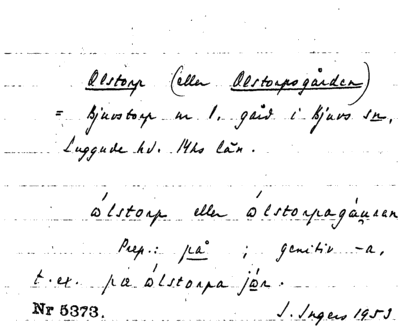 Olstorp (eller Olstorpsgården)
= Bjuvstorp nr 1, gård i Bjuvs sn,
Luggude hd. Mhs län.
ólstorp eller ólstorpagáuran
Prep.: på ; genitiv -a,
t.ex. pa ólstorpa jór.
Nr 5373. I. Ingers 1953